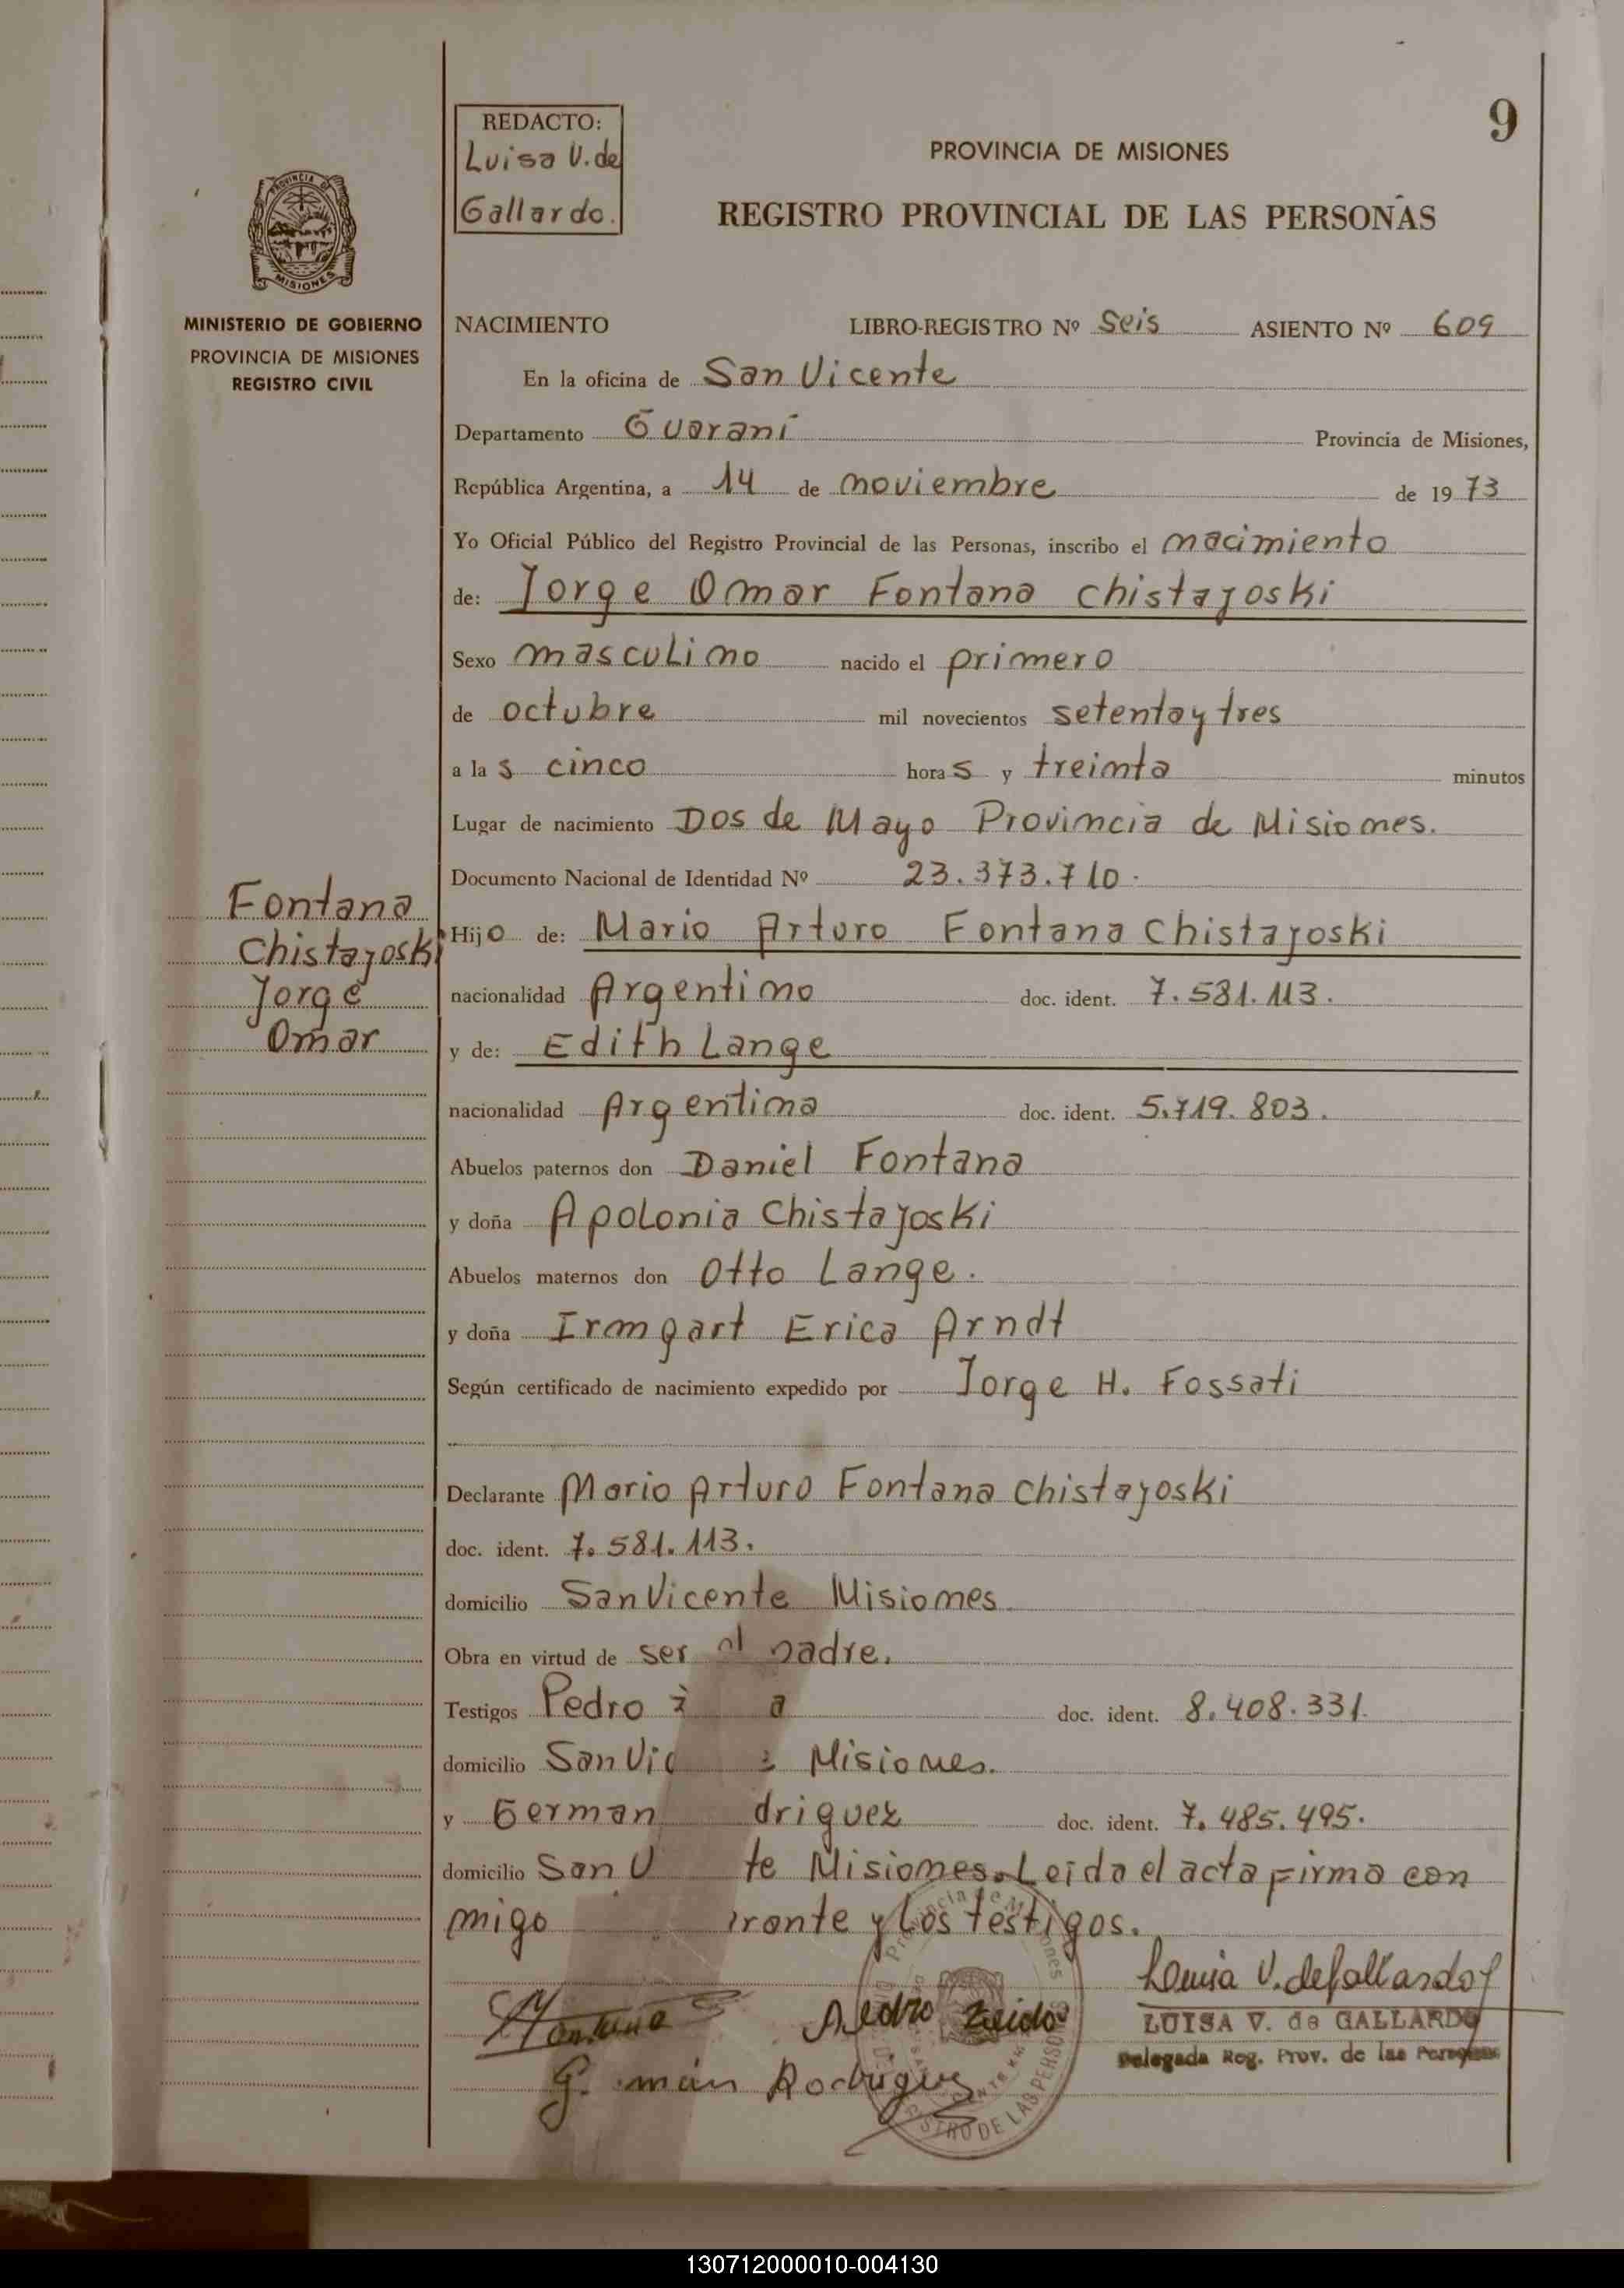 REDACTO:
Luisa V. de
Gallardo.
9
PROVINCIA DE MISIONES
REGISTRO PROVINCIAL DE LAS PERSONAS
PROVINCIA DE
MISIONES
MINISTERIO DE GOBIERNO
PROVINCIA DE MISIONES
REGISTRO CIVIL
NACIMIENTO LIBRO-REGISTRO Nº Seis ASIENTO Nº 609
En la oficina de San Vicente
Departamento Guaraní Provincia de Misiones,
República Argentina, a 14 de noviembre de 1973
Yo Oficial Público del Registro Provincial de las Personas, inscribo el nacimiento
de: Jorge Omar Fontana Chistajoski
Sexo masculino nacido el primero
de octubre mil novecientos setenta y tres
a las cinco horas y treinta minutos
Lugar de nacimiento Dos de Mayo Provincia de Misiones.
Documento Nacional de Identidad Nº 23.373.710.
Fontana
Chistajoski
Jorge
Omar
Hijo de: Mario Arturo Fontana Chistajoski
nacionalidad Argentino doc. ident. 7.581.113.
y de: Edith Lange
nacionalidad Argentina doc. ident. 5.719.803.
Abuelos paternos don Daniel Fontana
y doña Apolonia Chistajoski
Abuelos maternos don Otto Lange.
y doña Irmgart Erica Arndt
Según certificado de nacimiento expedido por Jorge H. Fossati
Declarante Mario Arturo Fontana Chistajoski
doc. ident. 7.581.113.
domicilio San Vicente Misiones.
Obra en virtud de ser el padre.
Testigos Pedro doc. ident. 8.408.331.
domicilio San Misiones.
y German doc. ident. 7.485.495.
domicilio San Misiones. Leida el acta firma con
migo y los testigos.
Luisa V. de Gallardo
LUISA V. de GALLARDO
Delegada Reg. Prov. de las Personas
Pedro
Rodriguez
130712000010-004130